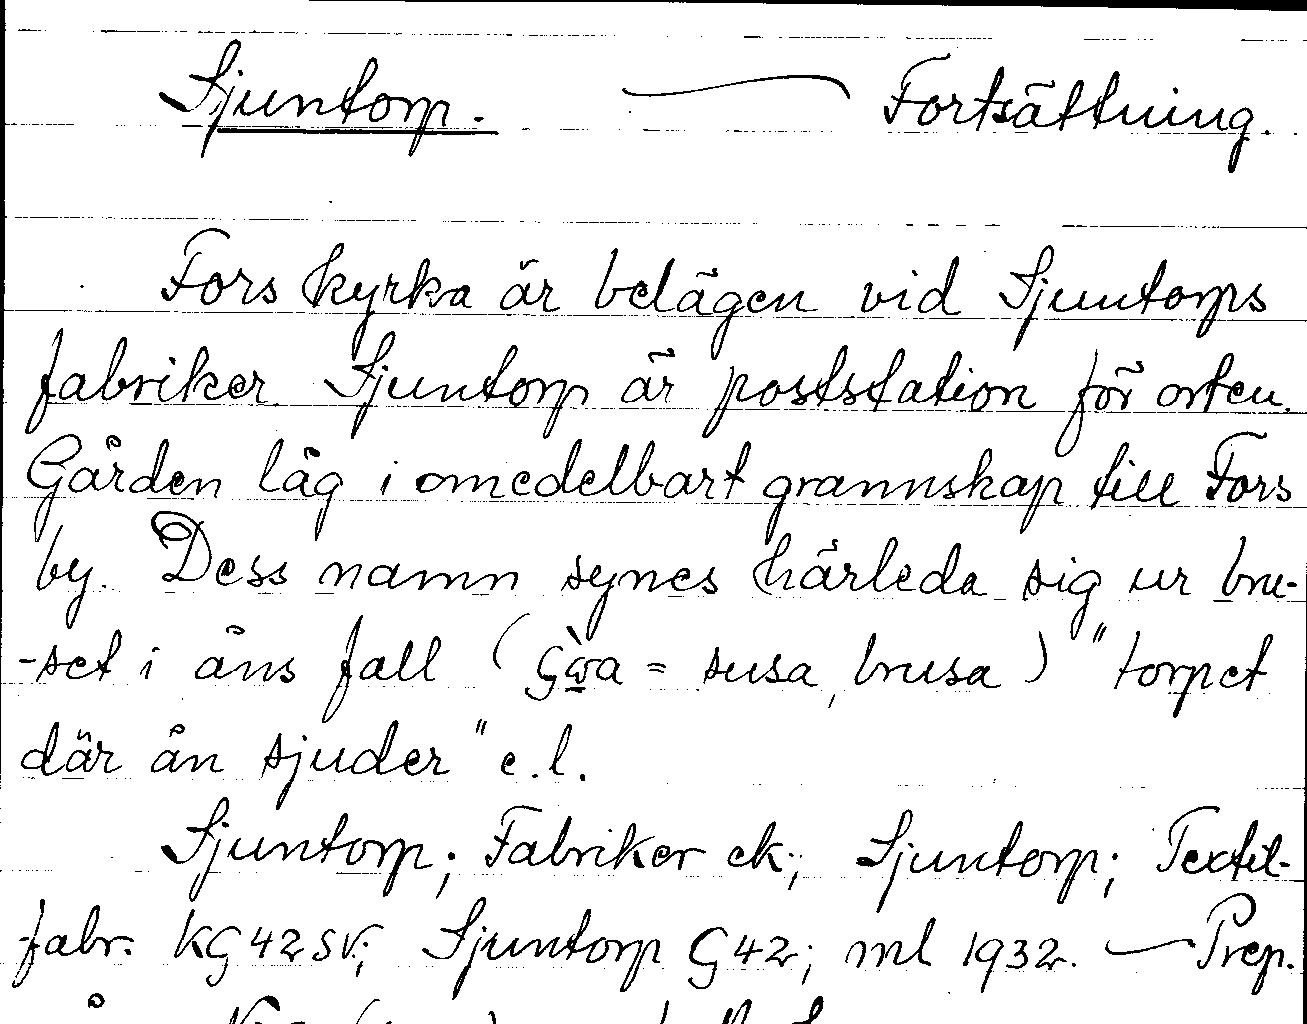 Sjuntorp. Fortsättning.
Fors kyrka är belägen vid Sjuntorps
fabriker. Sjuntorp är poststation för orten.
Gården låg i omedelbart grannskap till Fors
by. Dess namn synes härleda sig ur bru-
-set i åns fall ( = susa, brusa) "torpet
där ån sjuder" e.l.
Sjuntorp; Fabriker ek; Sjuntorp; Textil-
fabr. KG42SV; Sjuntorp G42; ml 1932. — Prep.